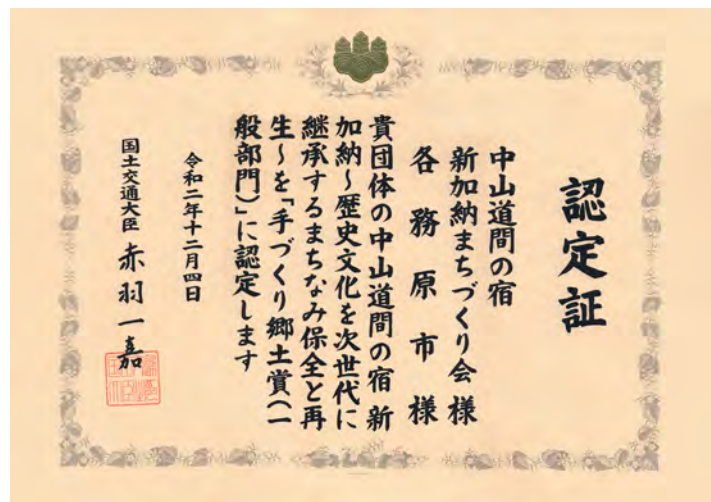 認定証
中山道間の宿
新加納まちづくり会 様
各務原市 様
貴団体の中山道間の宿 新
加納~歴史文化を次世代に
継承するまちなみ保全と再
生~を「手づくり郷土賞(一
般部門)」に認定します
令和二年十二月四日
国土交通大臣 赤羽一嘉